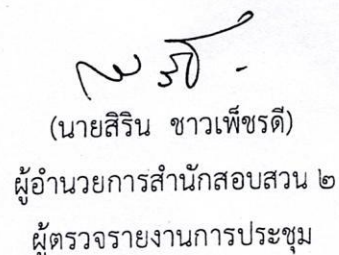 (นายสิริน ชาวเพ็ชรดี)
ผู้อำนวยการสำนักสอบสวน ๒
ผู้ตรวจรายงานการประชุม